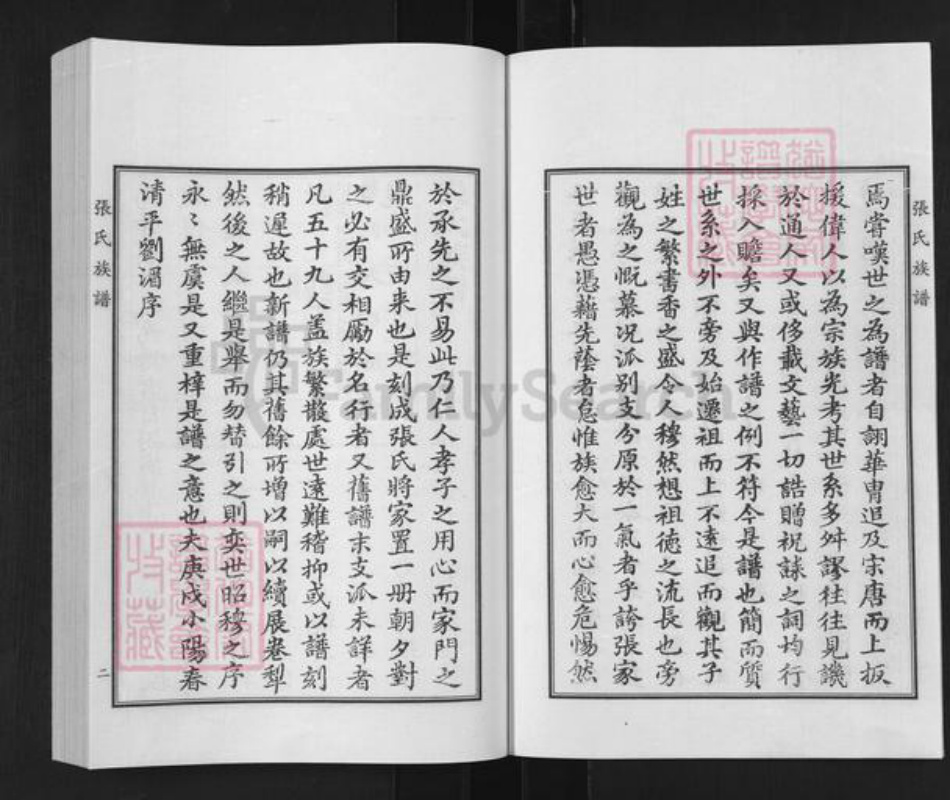 張氏族譜
焉嘗嘆世之為譜者自詡華胄追及宋唐而上扳
援偉人以為宗族光考其世系多舛謬往往見譏
於通人又或侈載文藝一切誥贈祝誄之詞均行
採入贍矣又與作譜之例不符今是譜也簡而質
世系之外不旁及始遷祖而上不遠追而觀其子
姓之繁書香之盛令人穆然想祖德之流長也旁
觀為之慨慕況派別支分原於一氣者乎誇張家
世者愚憑藉先蔭者怠惟族愈大而心愈危惕然
於承先之不易此乃仁人孝子之用心而家門之
鼎盛所由来也是刻成張氏將家置一册朝夕對
之必有交相勵於名行者又舊譜末支派未詳者
凡五十九人盖族繁散處世遠難稽抑或以譜刻
稍遲故也新譜仍其舊餘所增以嗣以續展卷犁
然後之人繼是舉而勿替引之則奕世昭穆之序
永〻無虞是又重梓是譜之意也夫庚戌小陽春
清平劉湄序
張氏族譜
二
FamilySearch